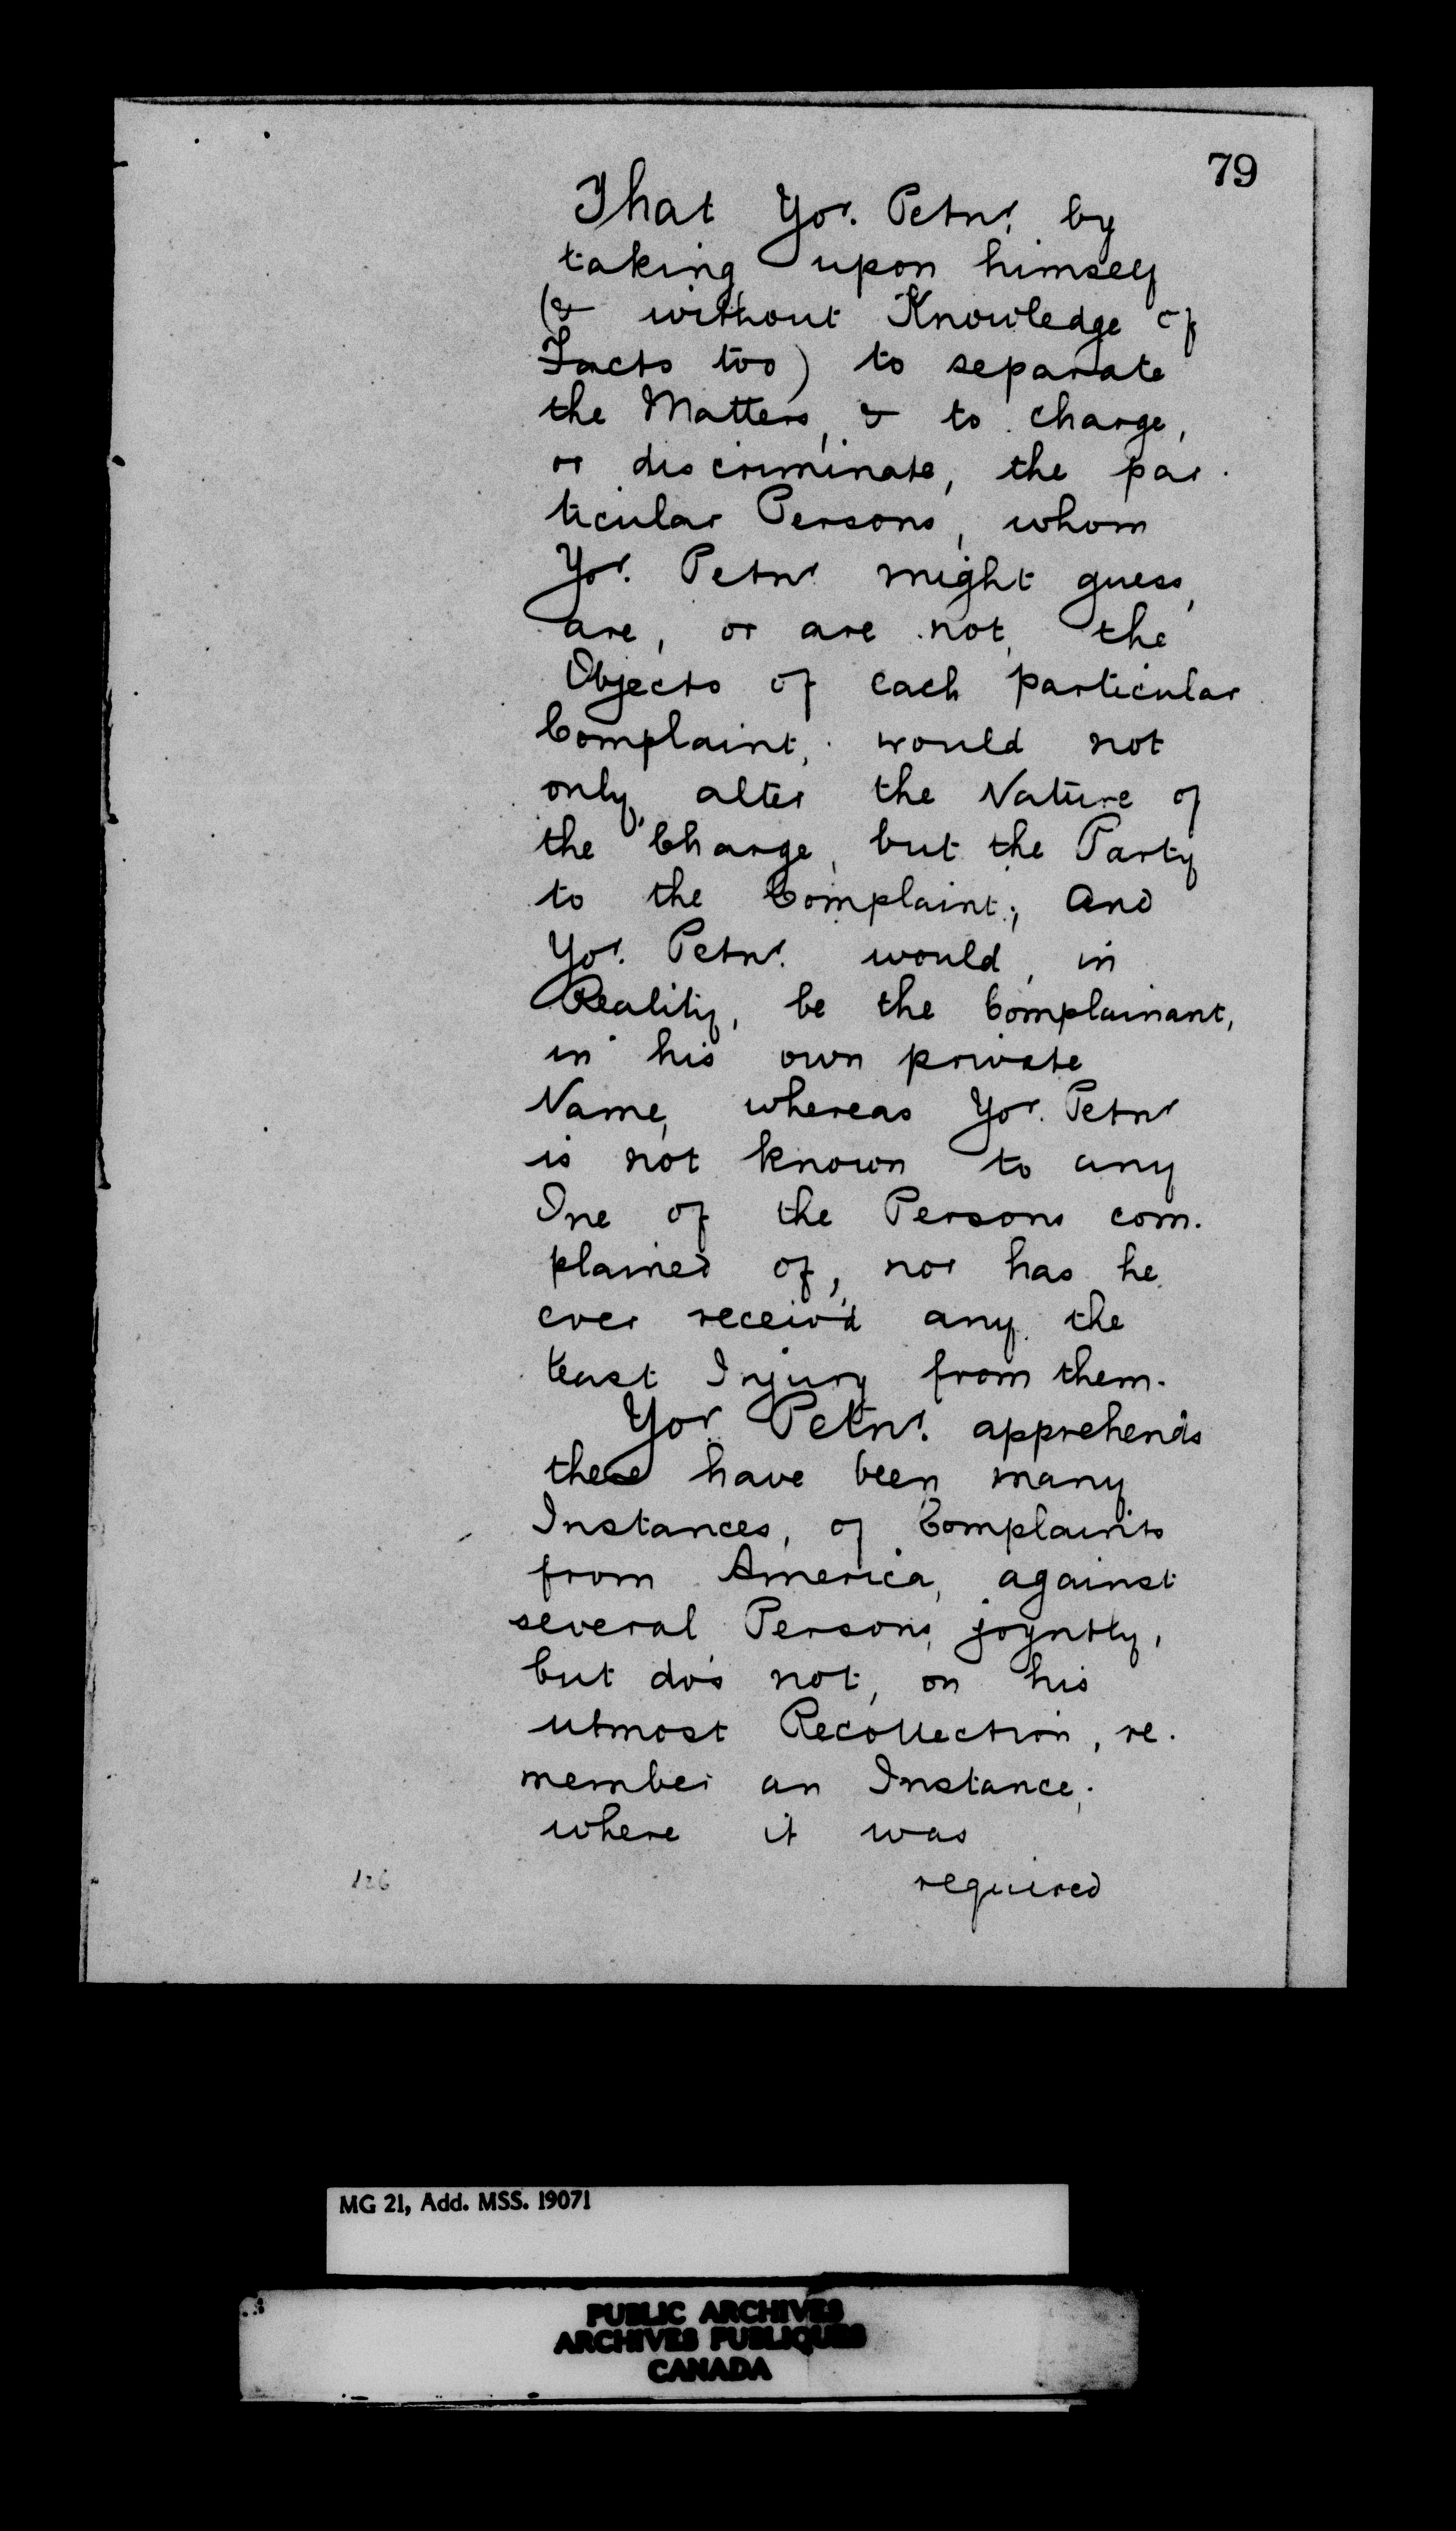 79
That Yor. Petnr. by
taking upon himself
(& without Knowledge of
Facts too) to separate
the Matters, & to charge,
or discriminate, the par-
ticular Persons, whom
Yor. Petnr. might guess,
are, or are not, the
Objects of each particular
Complaint, would not
only alter the Nature of
the Charge, but the Party
to the Complaint; And
Yor. Petnr. would, in
Reality, be the Complainant,
in his own private
Name, whereas Yor. Petnr
is not known to any
One of the Persons com-
plained of, nor has he
ever receiv'd any the
least Injury from them.
Yor. Petnr. apprehends
there have been many
Instances, of Complaints
from America, against
several Persons joyntly,
but do's not, on his
utmost Recollection, re-
member an Instance,
where it was
required
126
MG 21, Add. MSS. 19071
PUBLIC ARCHIVES
ARCHIVES PUBLIQUES
CANADA